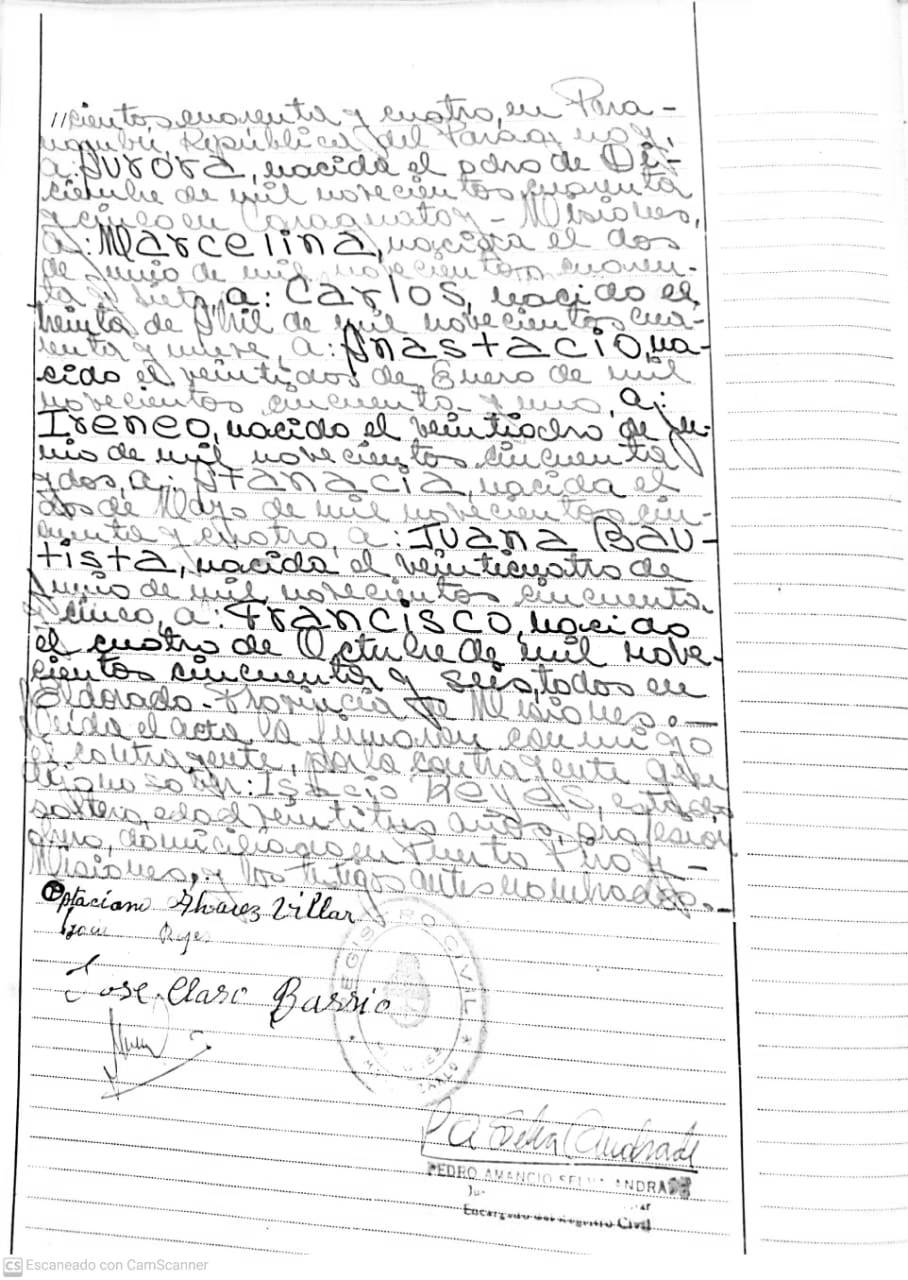 //cientos cuarenta y cuatro, en Para-
República del Paraguay,
a: AURORA, nacida el ocho de Di-
ciembre de mil novecientos cuarenta
y cinco en Caraguatay - Misiones,
a: Marcelina, nacida el dos
de Junio de mil novecientos cuaren-
ta y siete, a: Carlos, nacido el
treinta de Abril de mil novecientos cua-
renta y nueve, a: Anastacio, na-
cido el veintidos de Enero de mil
novecientos cincuenta y uno, a:
Ireneo, nacido el veintiocho de Ju-
nio de mil novecientos cincuenta
y dos, a: Atanacia, nacida el
dos de Mayo de mil novecientos cin-
cuenta y cuatro, a: Juana Bau-
tista, nacida el veinticuatro de
Junio de mil novecientos cincuenta
y cinco, a: Francisco, nacido
el cuatro de Octubre de mil nove-
cientos cincuenta y seis, todos en
Eldorado - Provincia de Misiones.-
Leida el acta la firmaron conmigo
el contrayente, por la contrayente a su
Reyes, estado
soltero, edad veintitres años, profesión
domiciliado en Puerto Piray -
Misiones, y los testigos antes nombrados.-
Optaciano Alvarez Villar
Reyes
Jose Claro Barrio
REGISTRO CIVIL
PEDRO AMANCIO SELVA ANDRADE
Encargado del Registro Civil
CS Escaneado con CamScanner